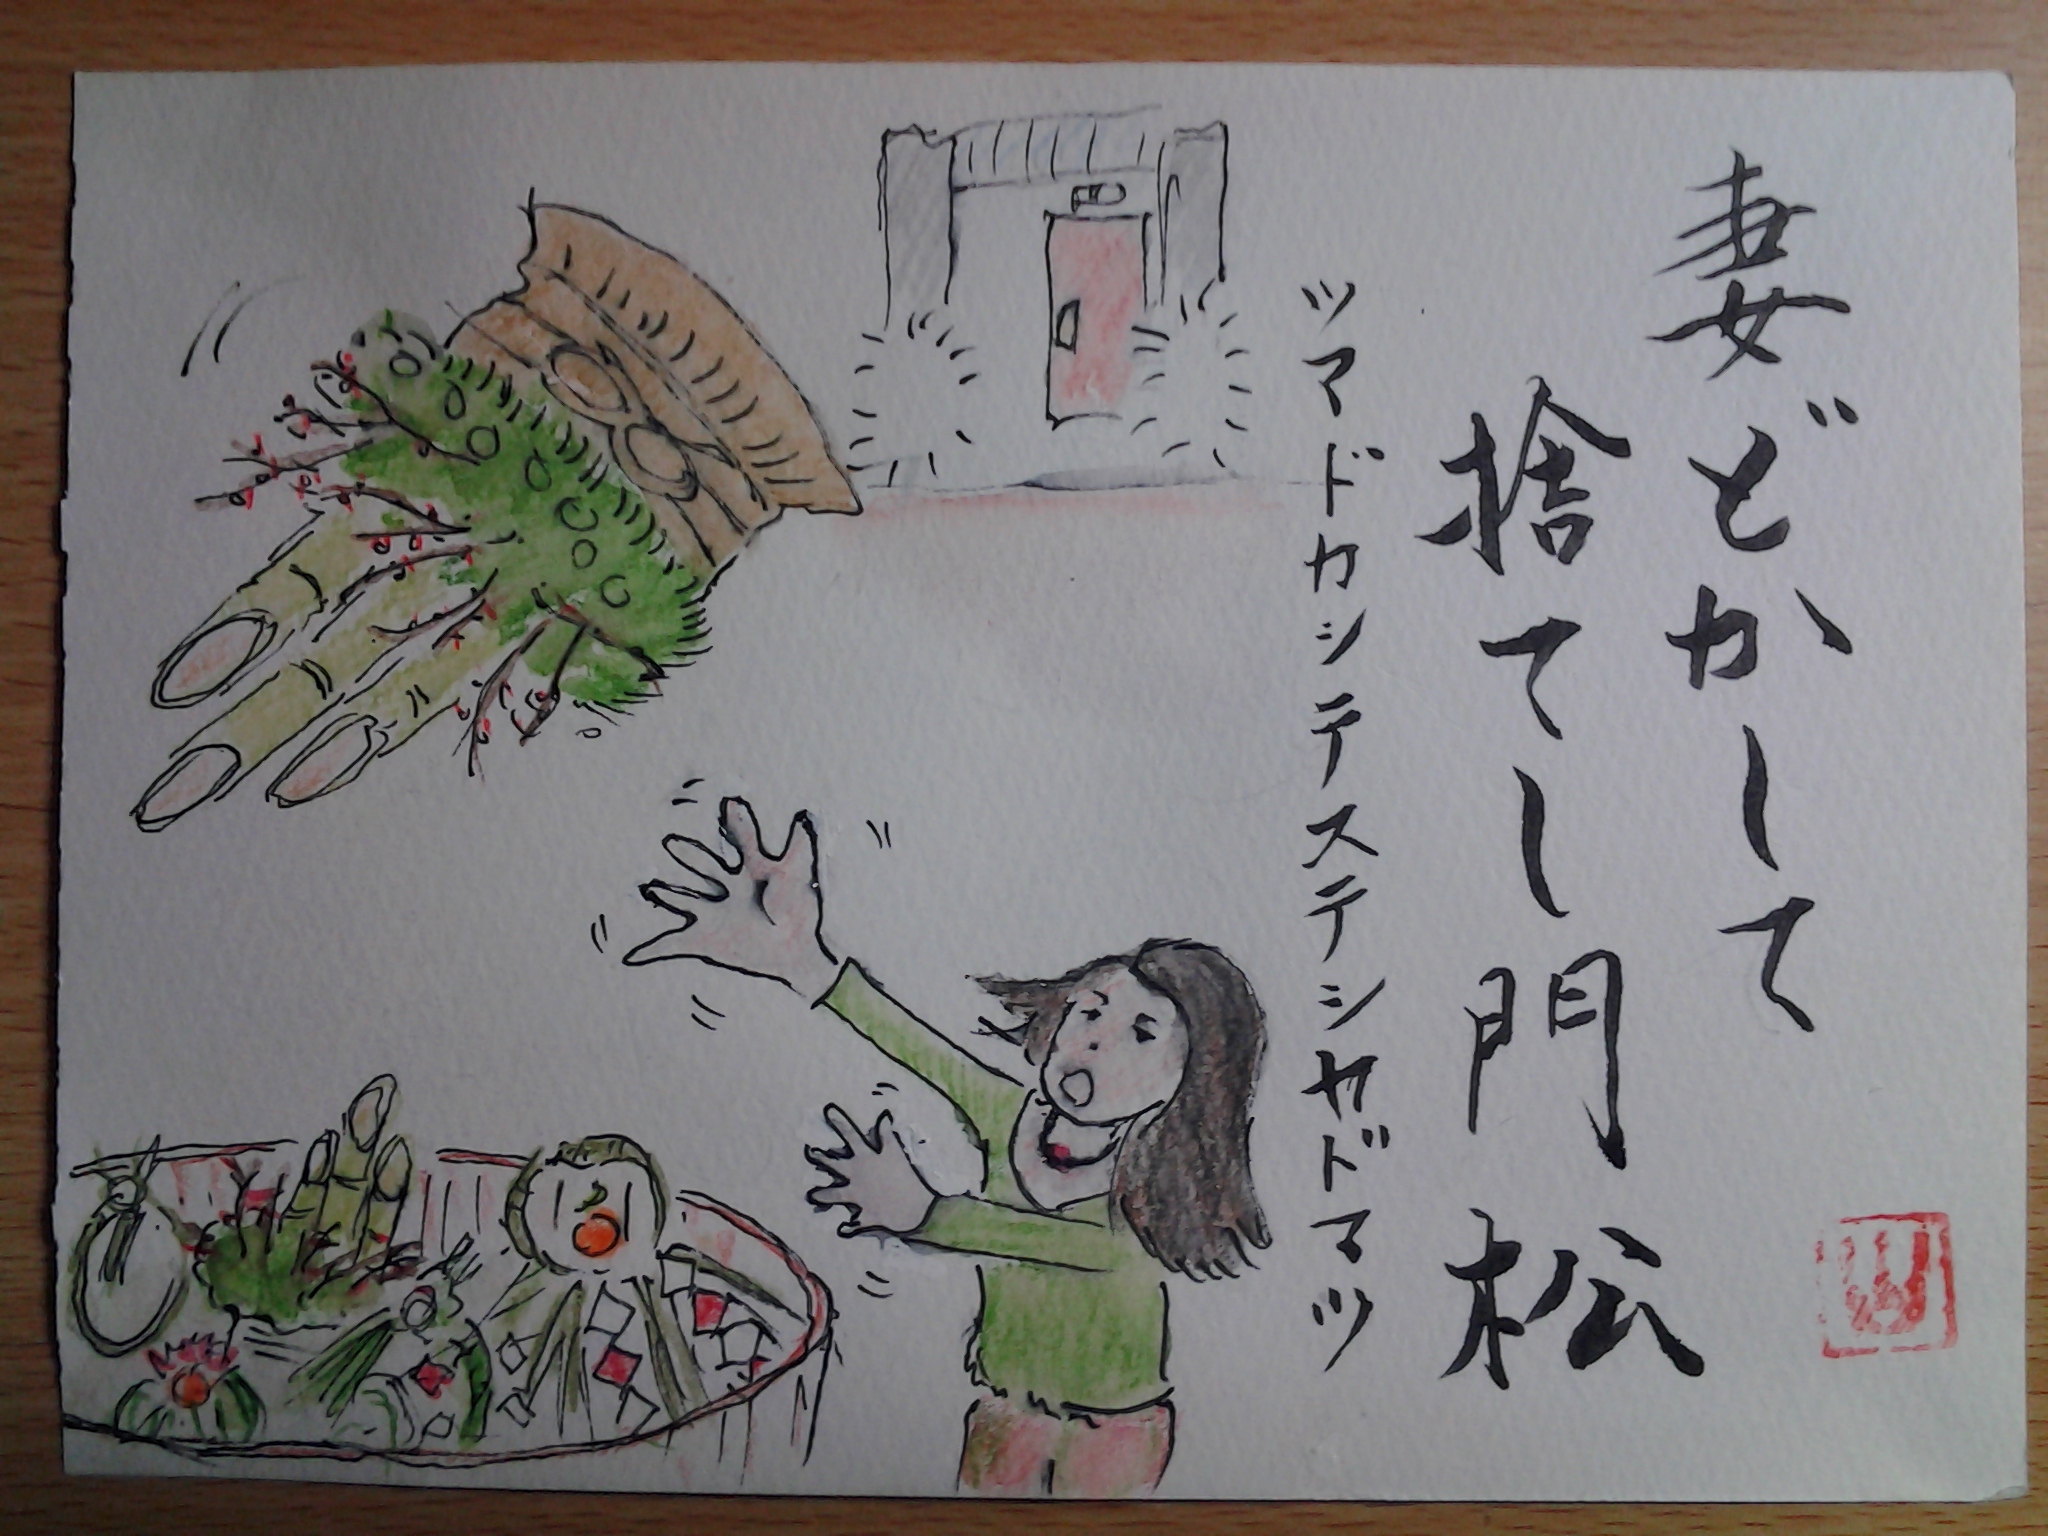 妻どかして
捨てし門松
ツマドカシテステシカドマツ